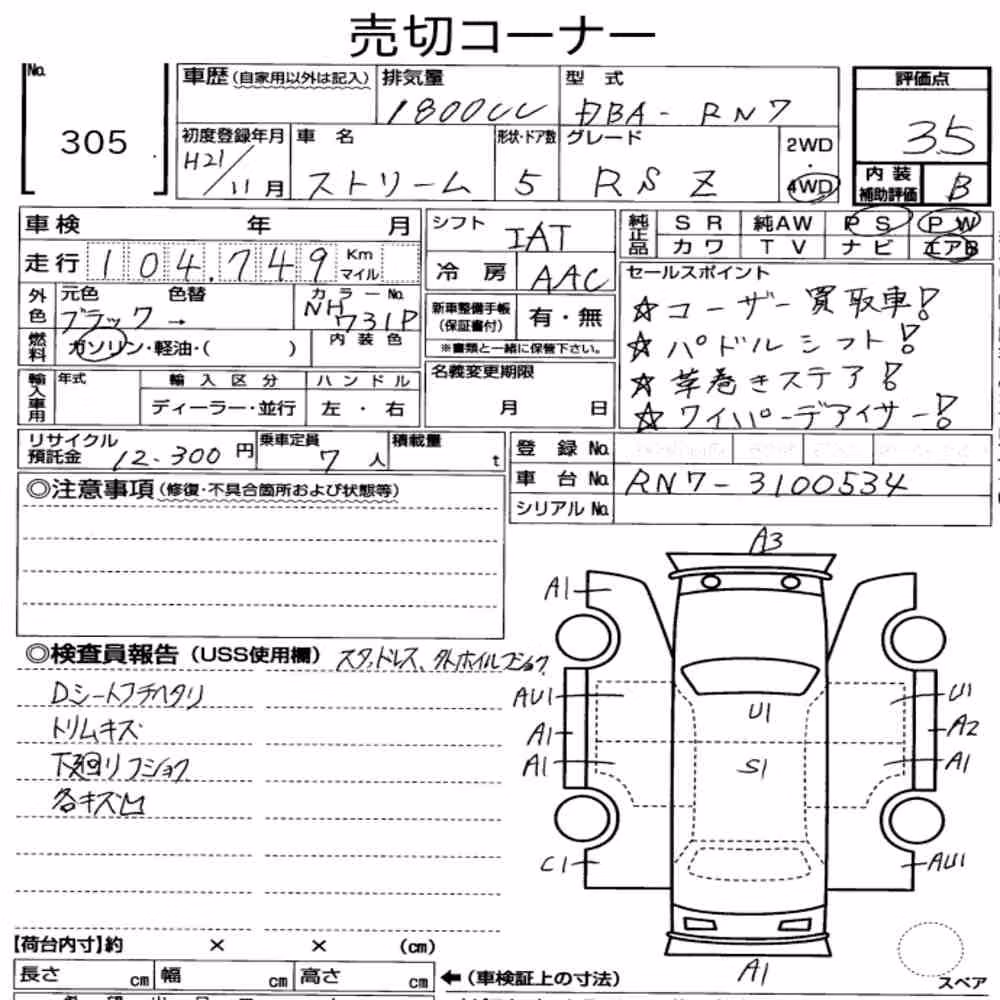 売切コーナー
No.
305
車歴(自家用以外は記入)
排気量
1800CC
型式
DBA-RN7
評価点
3.5
内装
補助評価
B
初度登録年月
H21/11月
車名
ストリーム
形状・ドア数
5
グレード
RSZ
2WD
・
4WD
車検 年 月
走行 104,749 Km
マイル
シフト
IAT
冷房
AAC
純正品
SR 純AW PS PW
カワ TV ナビ エアB
外色
元色 色替
ブラック→
カラーNo.
NH
731P
燃料
ガソリン・軽油・( )
内装色
新車整備手帳
(保証書付)
有・無
※書類と一緒に保管下さい。
セールスポイント
☆ユーザー買取車!
☆パドルシフト!
☆革巻きステア!
☆ワイパーデアイサー!
輸入車用
年式
輸入区分
ハンドル
ディーラー・並行
左・右
名義変更期限
月 日
リサイクル
預託金
12.300円
乗車定員
7人
積載量
t
登録No.
車台No.
RN7-3100534
シリアルNo.
◎注意事項(修復・不具合箇所および状態等)
◎検査員報告(USS使用欄)
スタッドレス、外ホイルフショク
Dシートフチヘタリ
トリムキズ
下廻りフショク
各キズ凹
A3
A1
AU1
A1
A1
C1
U1
S1
U1
A2
A1
AU1
A1
スペア
【荷台内寸】約 × × (cm)
長さ cm 幅 cm 高さ cm
←(車検証上の寸法)